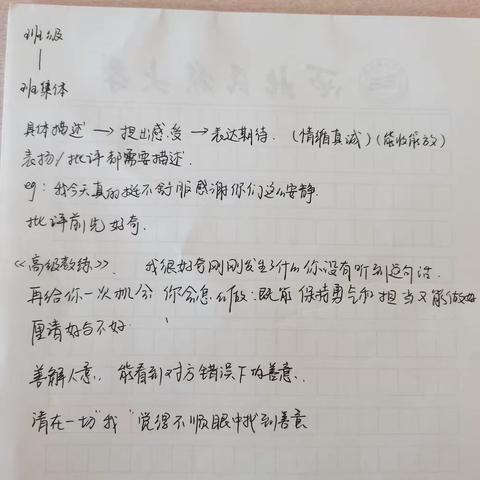 班级
班集体
具体描述 → 提出感受 → 表达期待. (情绪真诚) (能收能放)
表扬/批评都需要描述.
eg: 我今天真的挺不舒服感谢你们这么安静.
批评前先好奇.
《高级教练》. 我很好奇刚刚发生了什么你没有听到这句话.
再给你一次机会 你会怎么做: 既能保持勇气和担当又能做好
厘清好与不好
善解人意. 能看到对方错误下的善意.
请在一切"我"觉得不顺眼中找到善意